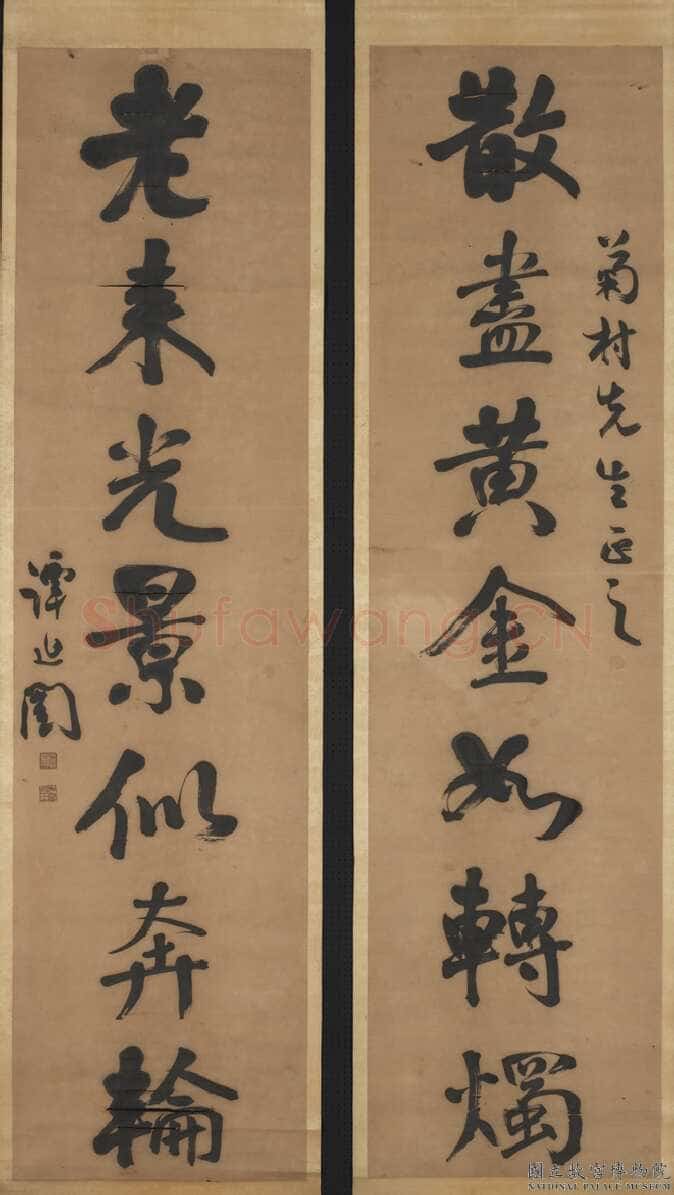 散盡黃金如轉燭
菊村先生正之
老來光景似奔輪
譚延闓
Shufawang.CN
國立故宮博物院
NATIONAL PALACE MUSEUM